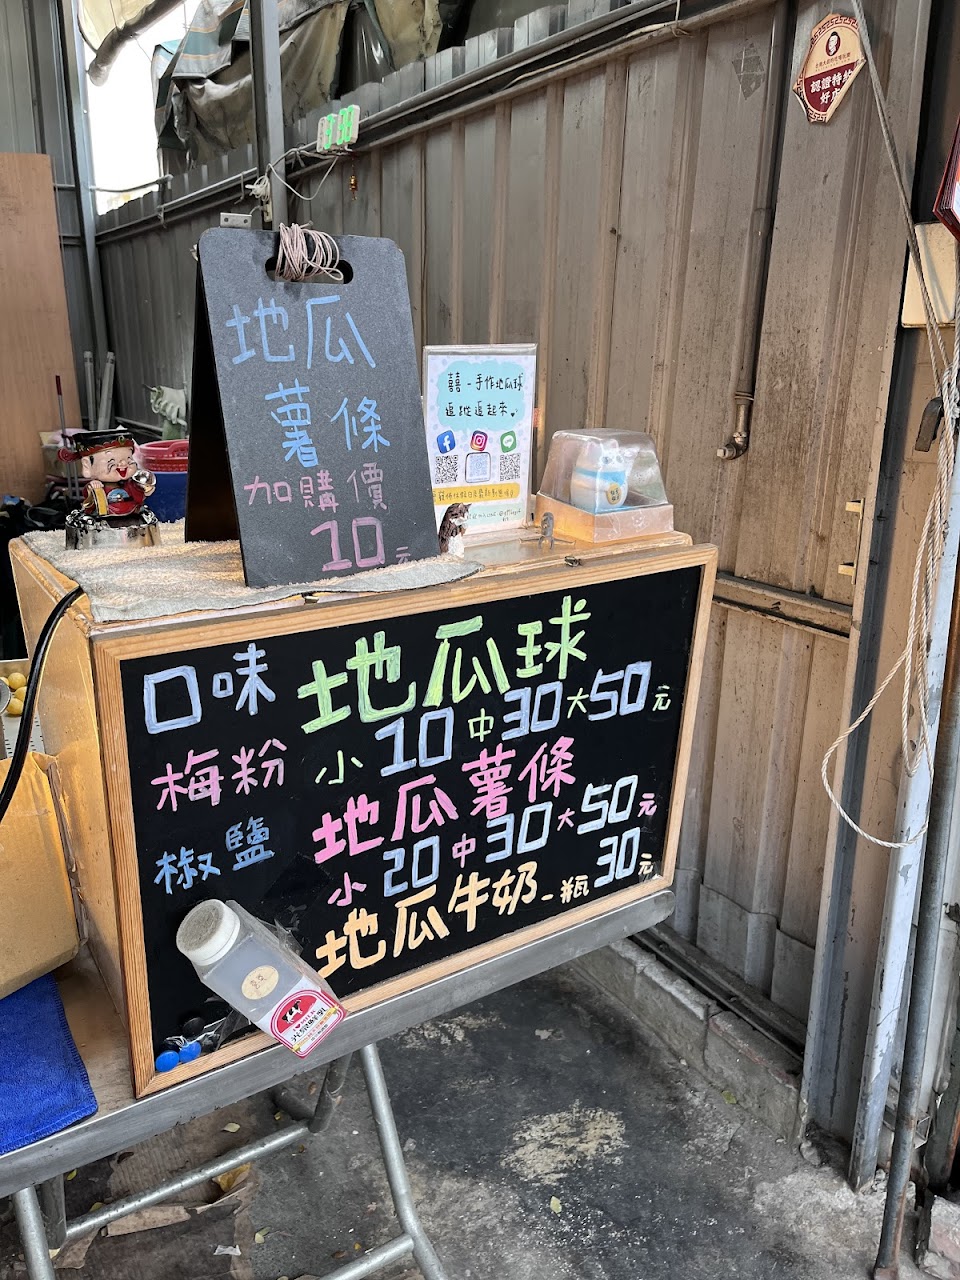 認證特約
好店
地瓜
薯條
加購價
10元
囍一手作地瓜球
逗地逗起來
口味
梅粉
椒鹽
地瓜球
小10中30大50元
地瓜薯條
小20中30大50元
地瓜牛奶一瓶30元